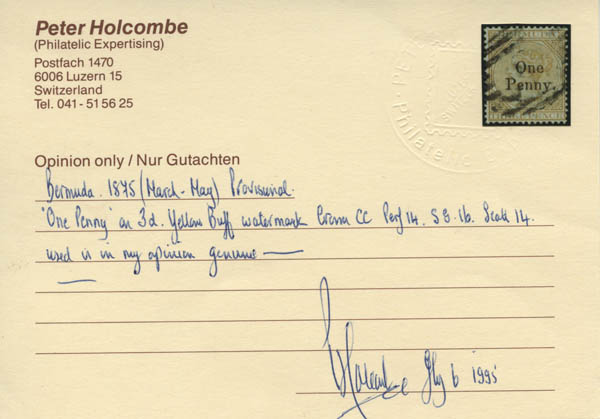 Peter Holcombe
(Philatelic Expertising)
Postfach 1470
6006 Luzern 15
Switzerland
Tel. 041 - 51 56 25
One
Penny.
THREE PENCE
Philatelic
Opinion only / Nur Gutachten
Bermuda. 1875 (March - May) Provisional.
"One Penny" on 3d. Yellow Buff watermark Crown CC Perf 14. SG. 16. Scott 14.
used is in my opinion genuine
6 1995